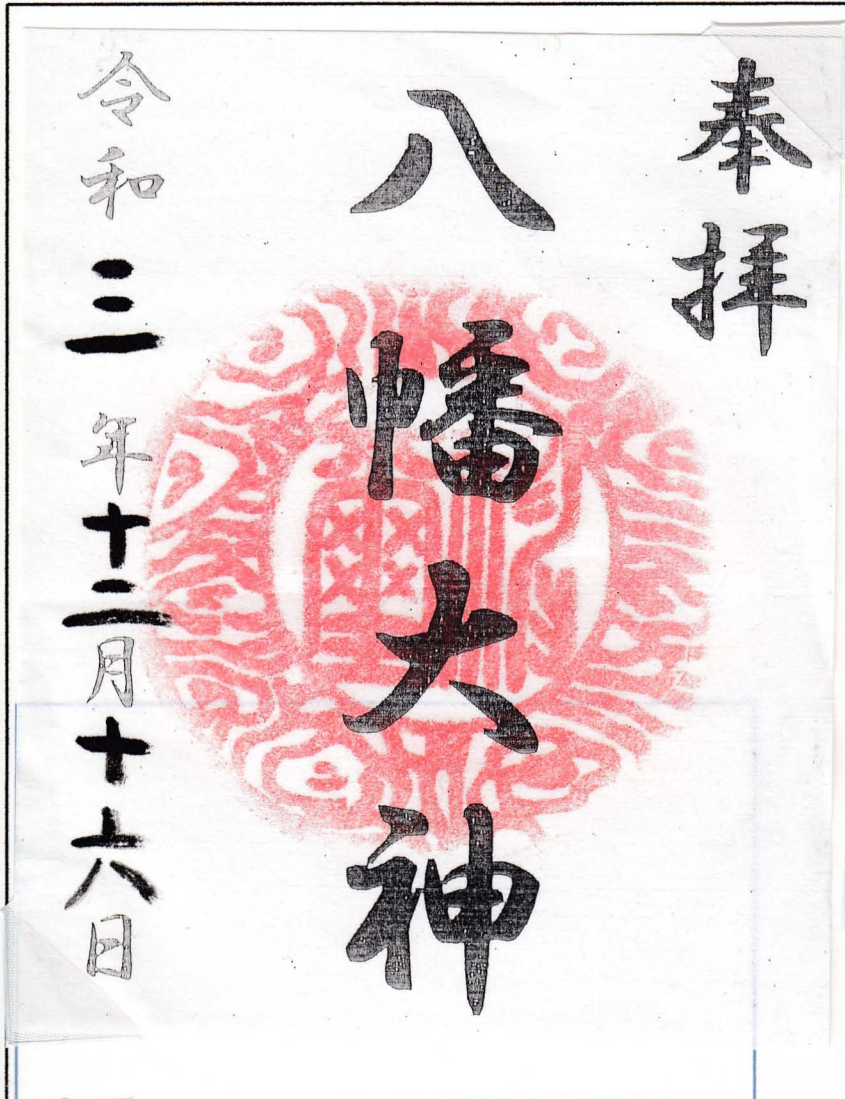 奉拝
八幡大神
令和三年十二月十六日